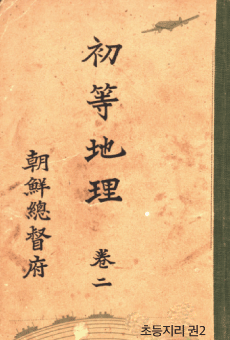 初等地理
卷二
朝鮮總督府
초등지리 권2